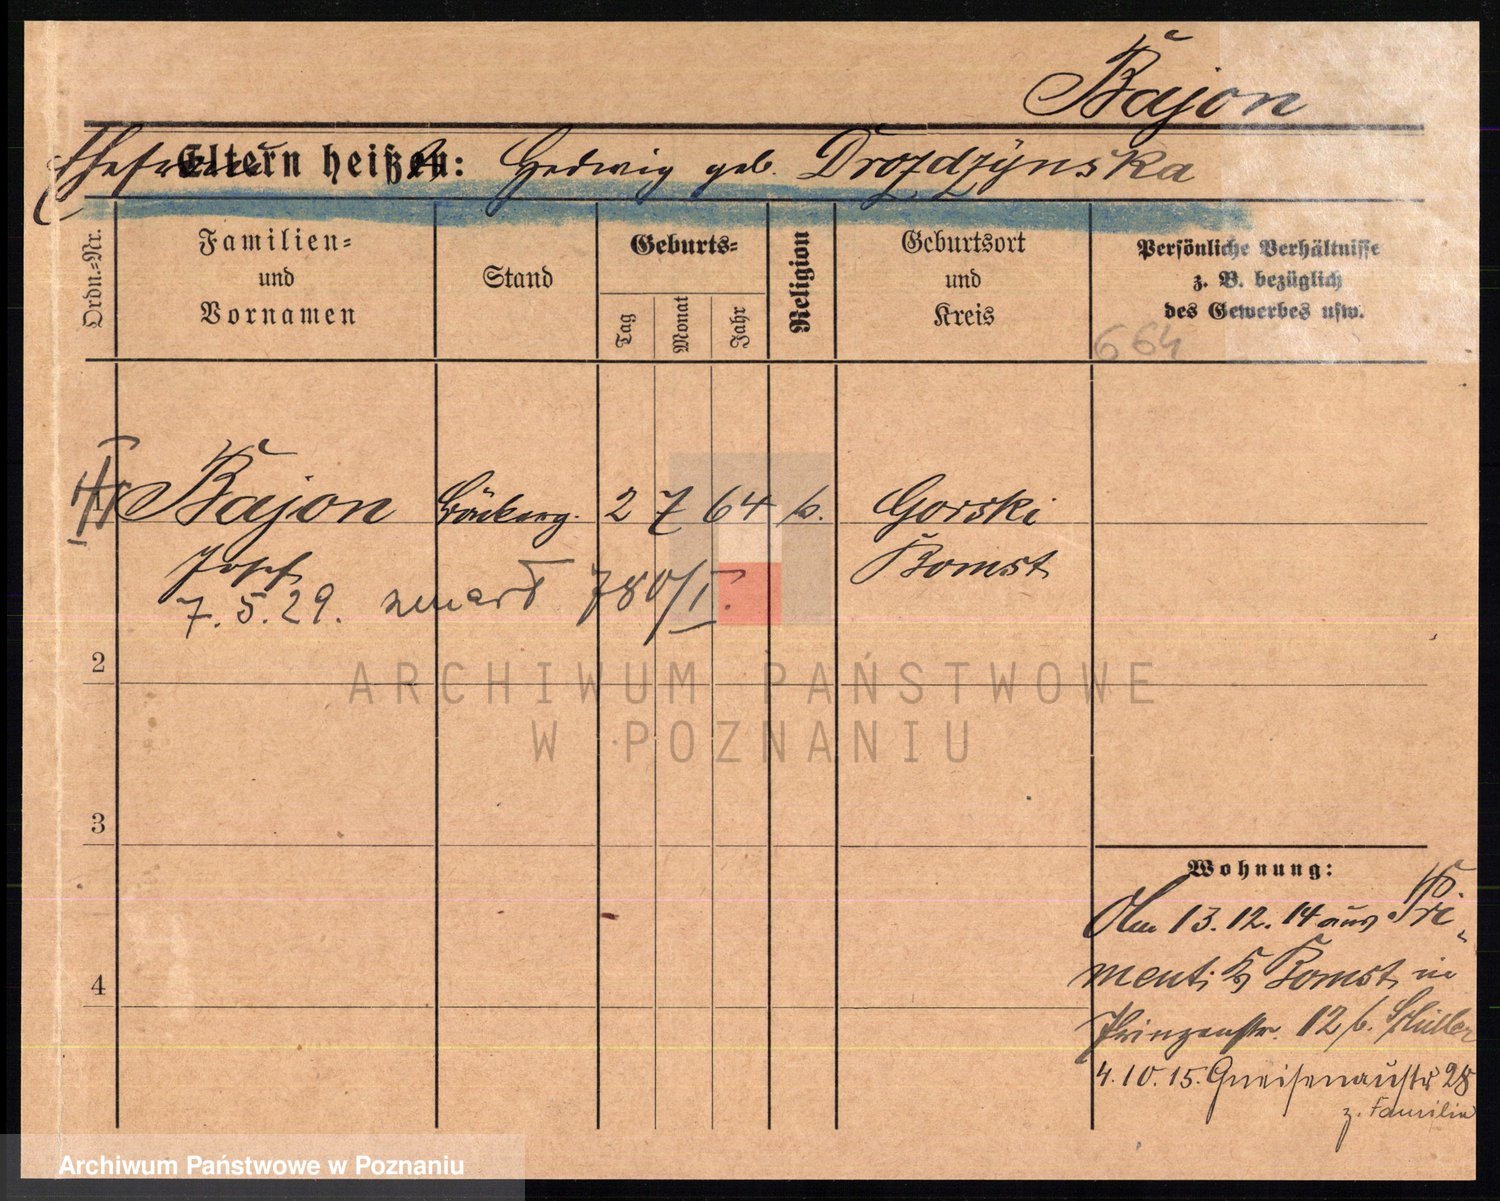 Bajon
Eltern heißen: Hedwig geb. Drozdzynska
Ordn.-Nr.
Familien-
und
Vornamen
Stand
Geburts-
Tag
Monat
Jahr
Religion
Geburtsort
und
Kreis
Persönliche Verhältnisse
z. B. bezüglich
des Gewerbes usw.
664
Bajon 2 7 64 k. Gorski
Josef Bomst
7.5.29. zmarł 780/I.
2
3
4
ARCHIWUM PAŃSTWOWE
W POZNANIU
Wohnung:
Am 13.12.14 aus Pri-
ment, Kr. Bomst in
Prinzenstr. 12 b. Müller
4.10.15. Gneisenaustr 28
z. Familie
Archiwum Państwowe w Poznaniu